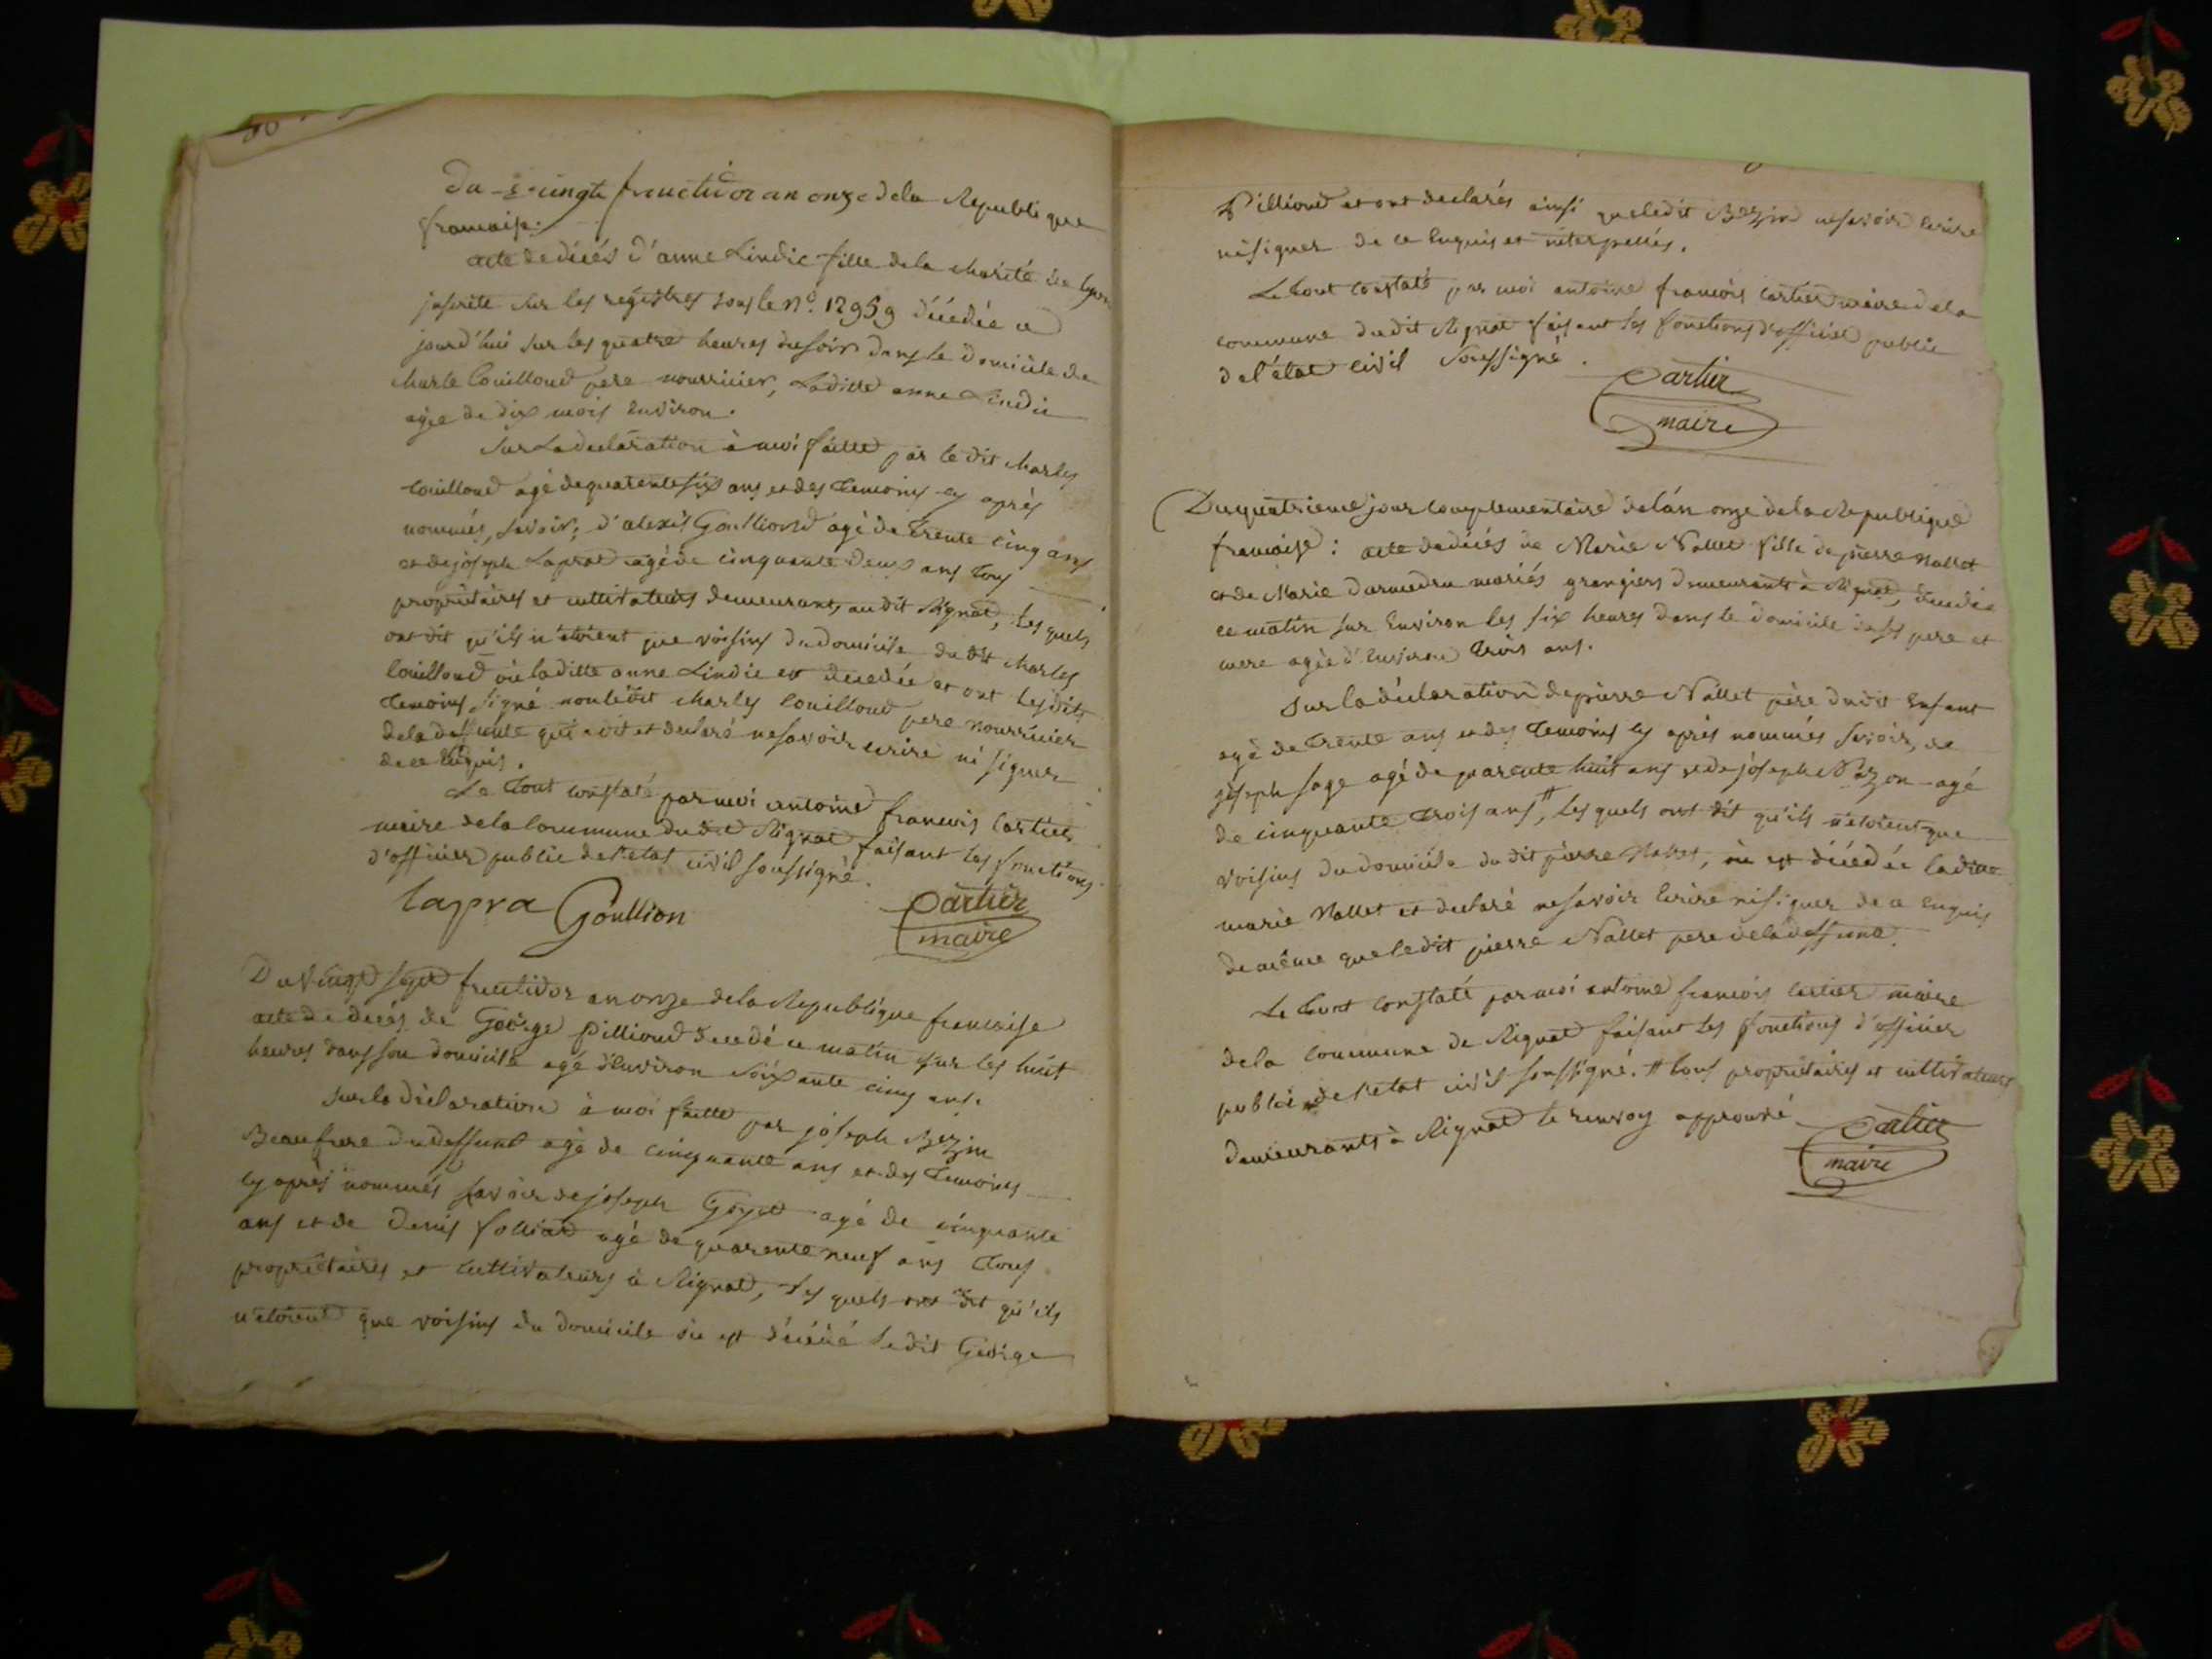 Du vingt fructidor an onze de la Republique
francaise.
acte de décés d'anne Lindic fille de la charité de Lyon
inscrite sur les registres sous le n°. 12959 décédée ce
jourd'hui sur les quatre heures du soir dans le domicile de
charle Couilloud pere nourricier, Laditte anne Lindic
agée de dix mois Environ.
Sur La declaration à moi faitte par le dit charles
Couilloud agé de quarente six ans et des temoins cy après
nommés, savoir; d'alexis Goullion agé de trente cinq ans
et de joseph Laprat agé de cinquante deux ans tous
propriétaires et cultivateurs demeurants au dit Rignat, Les quels
ont dit qu'ils n'étoient que voisins du domicile du dit charles
Couilloud où laditte anne Lindic est decedée et ont Lesdits
temoins signé non ledit charles Couilloud pere nourricier
de la deffunte qui a dit et declaré ne savoir ecrire ni signer
de ce Enquis.
Le tout constaté par moi antoine francois Cartier
maire de la Commune du dit Rignat faisant les fonctions
d'officier public de l'etat civil soussigné.
Lapra Goullion Cartier
maire
Du vingt sept fructidor an onze de la Republique francaise
acte de deces de George Pillioud decedé ce matin sur les huit
heures dans son domicile agé d'Environ soixante cinq ans.
Sur la déclaration à moi faitte par joseph Bozjin
Beaufrere du deffunt agé de cinquante ans et des temoins
cy après nommés savoir de joseph Goyet agé de cinquante
ans et de Denis folliat agé de quarente neuf ans tous
propriétaires et cultivateurs à Rignat, Les quels ont dit qu'ils
n'etoient que voisins du domicile où est décédé le dit George
Pillioud et ont declarés ainsi que ledit Bozjin ne savoir Ecrire
ni signer de ce Enquis et interpellés.
Le tout constaté par moi antoine francois Cartier maire de la
commune du dit Rignat faisant les fonctions d'officier public
de l'état civil Soussigné.
Cartier
maire
Du quatrieme jour complementaire de l'an onze de la Republique
francaise: acte de décés de Marie Nallet fille de pierre Nallet
et de Marie mariés grangiers demeurants à Rignat, decedée
ce matin sur Environ les six heures dans le domicile de ses pere et
mere agée d'Environ trois ans.
Sur la déclaration de pierre Nallet père du dit Enfant
agé de trente ans et des temoins cy après nommés savoir, de
joseph sage agé de quarente huit ans et de joseph agé
de cinquante trois ans #, Les quels ont dit qu'ils n'etoient que
voisins du domicile du dit pierre Nallet, où est décédée la ditte
marie Nallet et declaré ne savoir Ecrire ni signer de ce Enquis
de même que le dit pierre Nallet pere de la deffunte.
Le tout constaté par moi antoine francois Cartier maire
de la Commune de Rignat faisant les fonctions d'officier
public de l'etat civil soussigné. # tous propriétaires et cultivateurs
demeurants à Rignat le renvoy approuvé
Cartier
maire